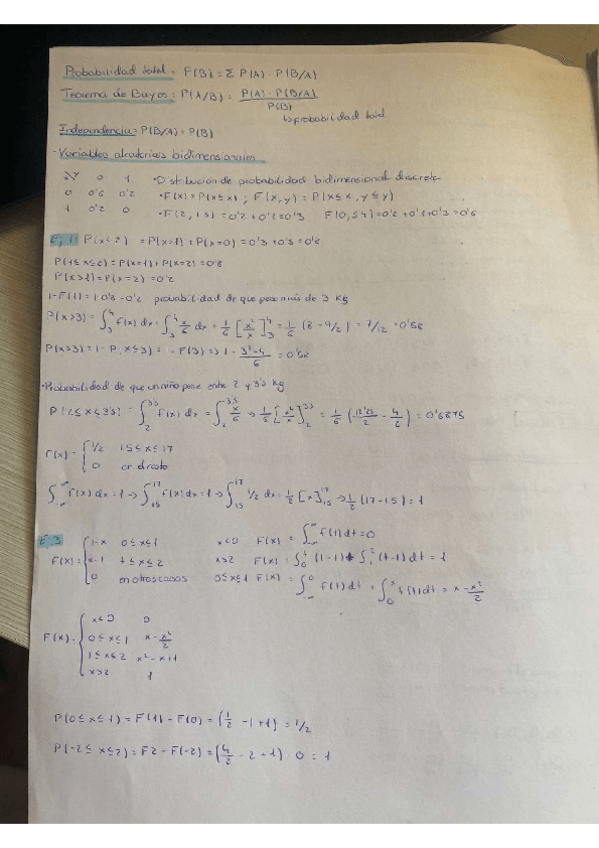 Probabilidad total: P(B) = Σ P(A) · P(B/A)
Teorema de Bayes: P(A/B) = P(A) · P(B/A) / P(B)
↳ probabilidad total
Independencia: P(B/A) = P(B)
- Variables aleatorias bidimensionales
0 1 • Distribución de probabilidad bidimensional discreta
0 0'6 0'2 • F(x) = P(X≤x) ; F(x,y) = P(X≤x, y≤y)
1 0'2 0
P(1≤x≤2) = P(x=1) + P(x=2) = 0'5
P(x>1) = P(x=2) = 0'2
1-F(1) = 1-0'8 = 0'2 probabilidad de que pese más de 3 kg
P(x>3) = ∫₃⁴ f(x) dx = ∫₃⁴ x/6 dx = 1/6 [x²/2]₃⁴ = 1/6 (8 - 9/2) = 7/12 = 0'58
• Probabilidad de que un niño pese entre 2 y 3'5 kg
P(2≤x≤3'5) = ∫₂^3'5 f(x) dx = ∫₂^3'5 x/6 → 1/6 [x²/2]₂^3'5 = 1/6 (12'25/2 - 4/2) = 0'6875
f(x) = { 1/2 15≤x≤17
0 en el resto
∫ f(x) dx = 1 → ∫₁₅¹⁷ f(x) dx = 1 → ∫₁₅¹⁷ 1/2 dx = 1/2 [x]₁₅¹⁷ → 1/2 (17-15) = 1
E.3 1-x 0≤x≤1 x<0 F(x) = ∫ f(t) dt = 0
f(x) = x-1 1≤x≤2 x>2 F(x) = ∫₀¹ (1-t) + ∫₁² (t-1) dt = 1
0 en otros casos 0≤x≤1 F(x) = ∫ f(t) dt = ∫₀ˣ f(t) dt = x - x²/2
x<0 0
F(x) = { 0≤x≤1 x - x²/2
1≤x≤2
x>2 1
P(0≤x≤1) = F(1) - F(0) = (1/2 - 1 + 1) = 1/2
P(-2≤x≤2) = F2 - F(-2) = (4/2 - 2 + 1) - 0 = 1